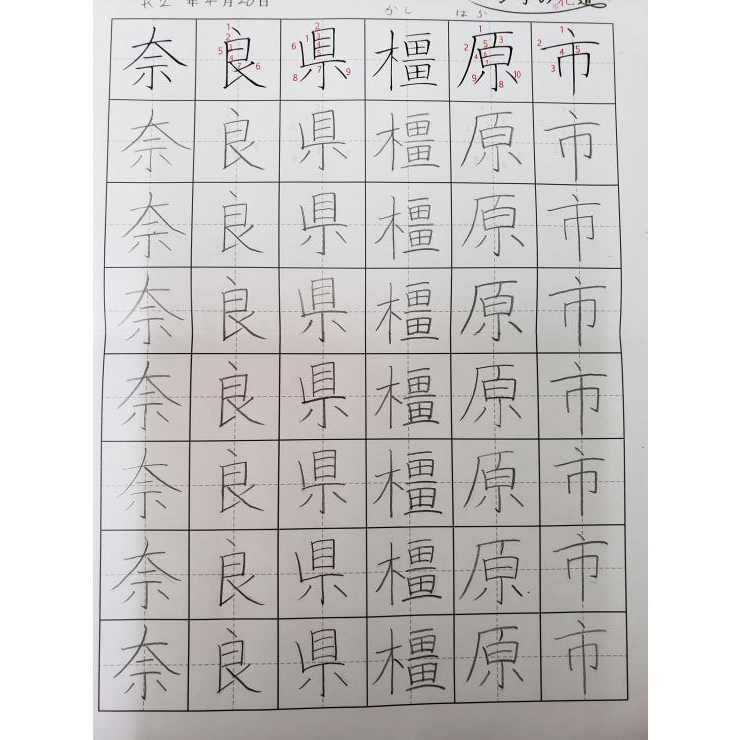 R2 年4月20日
かし はら
奈良県橿原市
奈良県橿原市
奈良県橿原市
奈良県橿原市
奈良県橿原市
奈良県橿原市
奈良県橿原市
奈良県橿原市